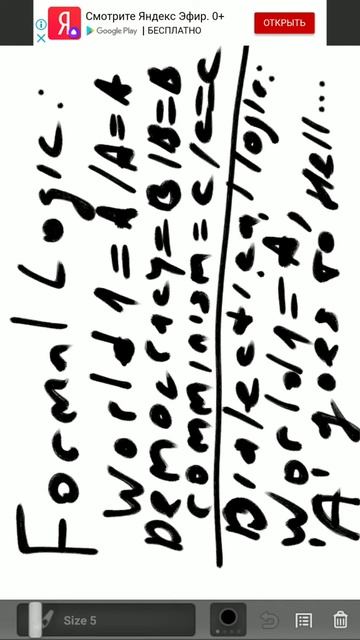 Смотрите Яндекс Эфир. 0+
Google Play | БЕСПЛАТНО
ОТКРЫТЬ
Formal Logic:
World 1 = A / A = A
Democracy = B / B = B
Comminism = C / C = C
Dialectical logic:
World 1 = A,
A goes to Hell...
Size 5